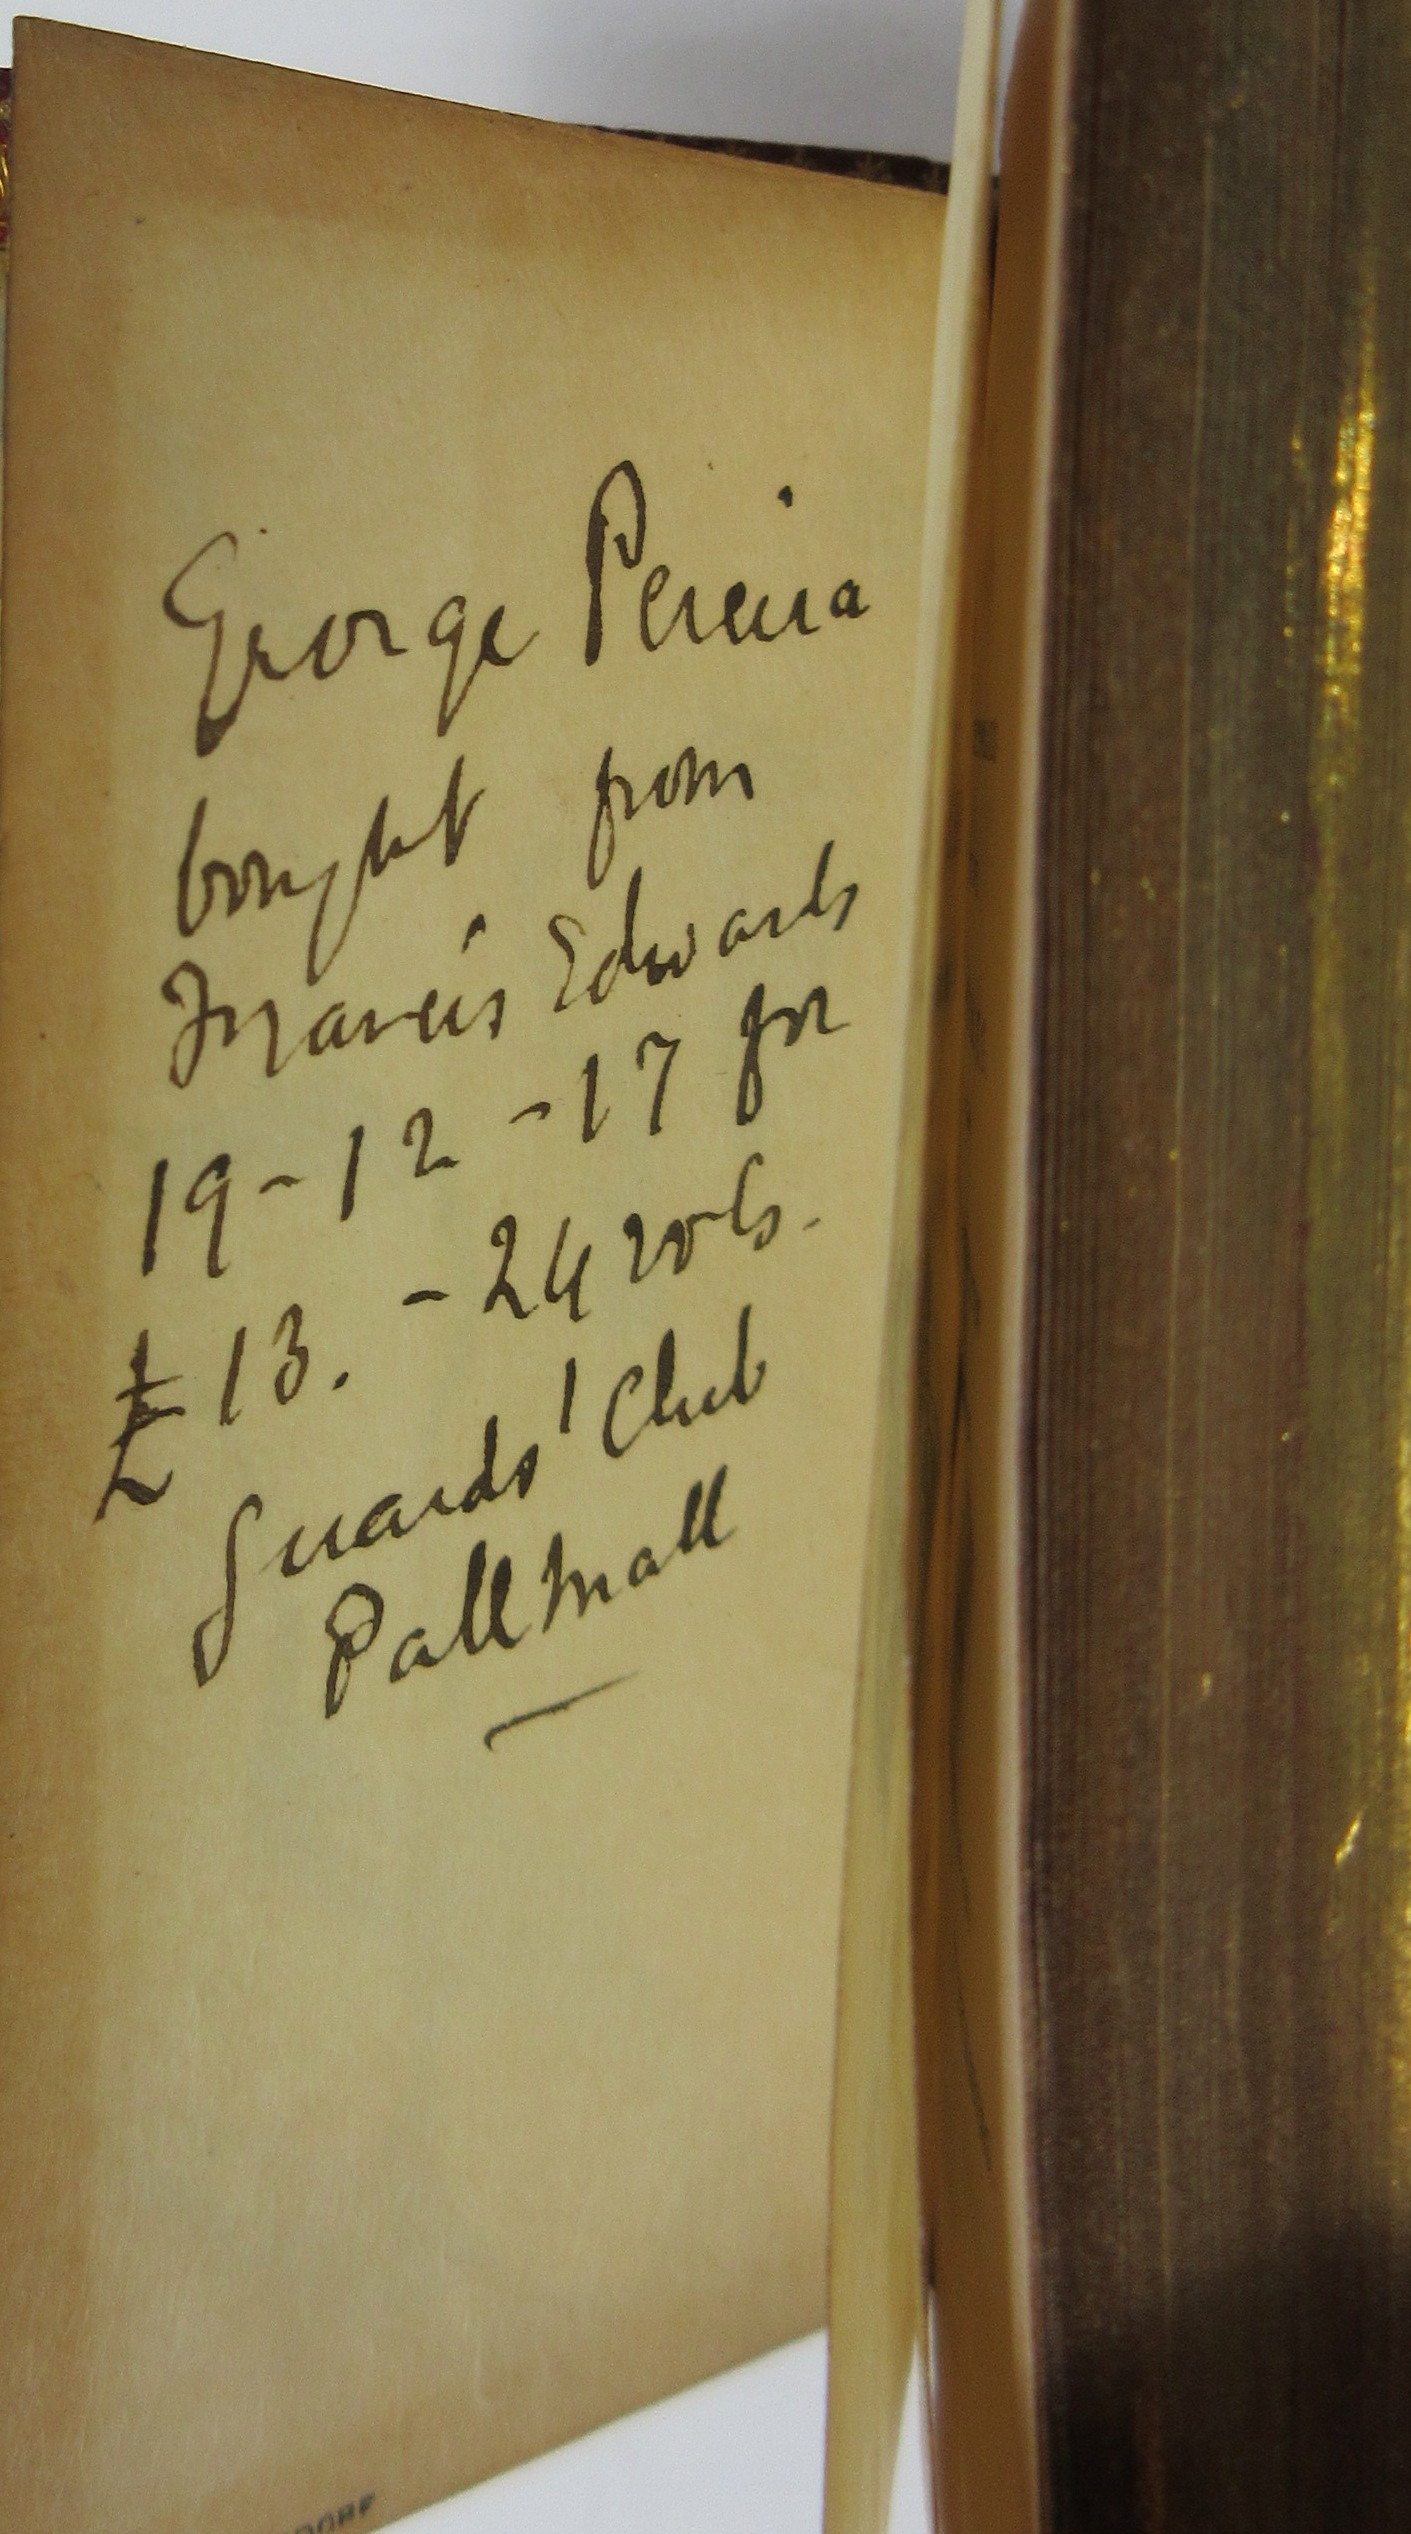 George Pereira
bought from
Francis Edwards
19-12-17 for
£13. - 24 vols.
Guards' Club
Pall Mall